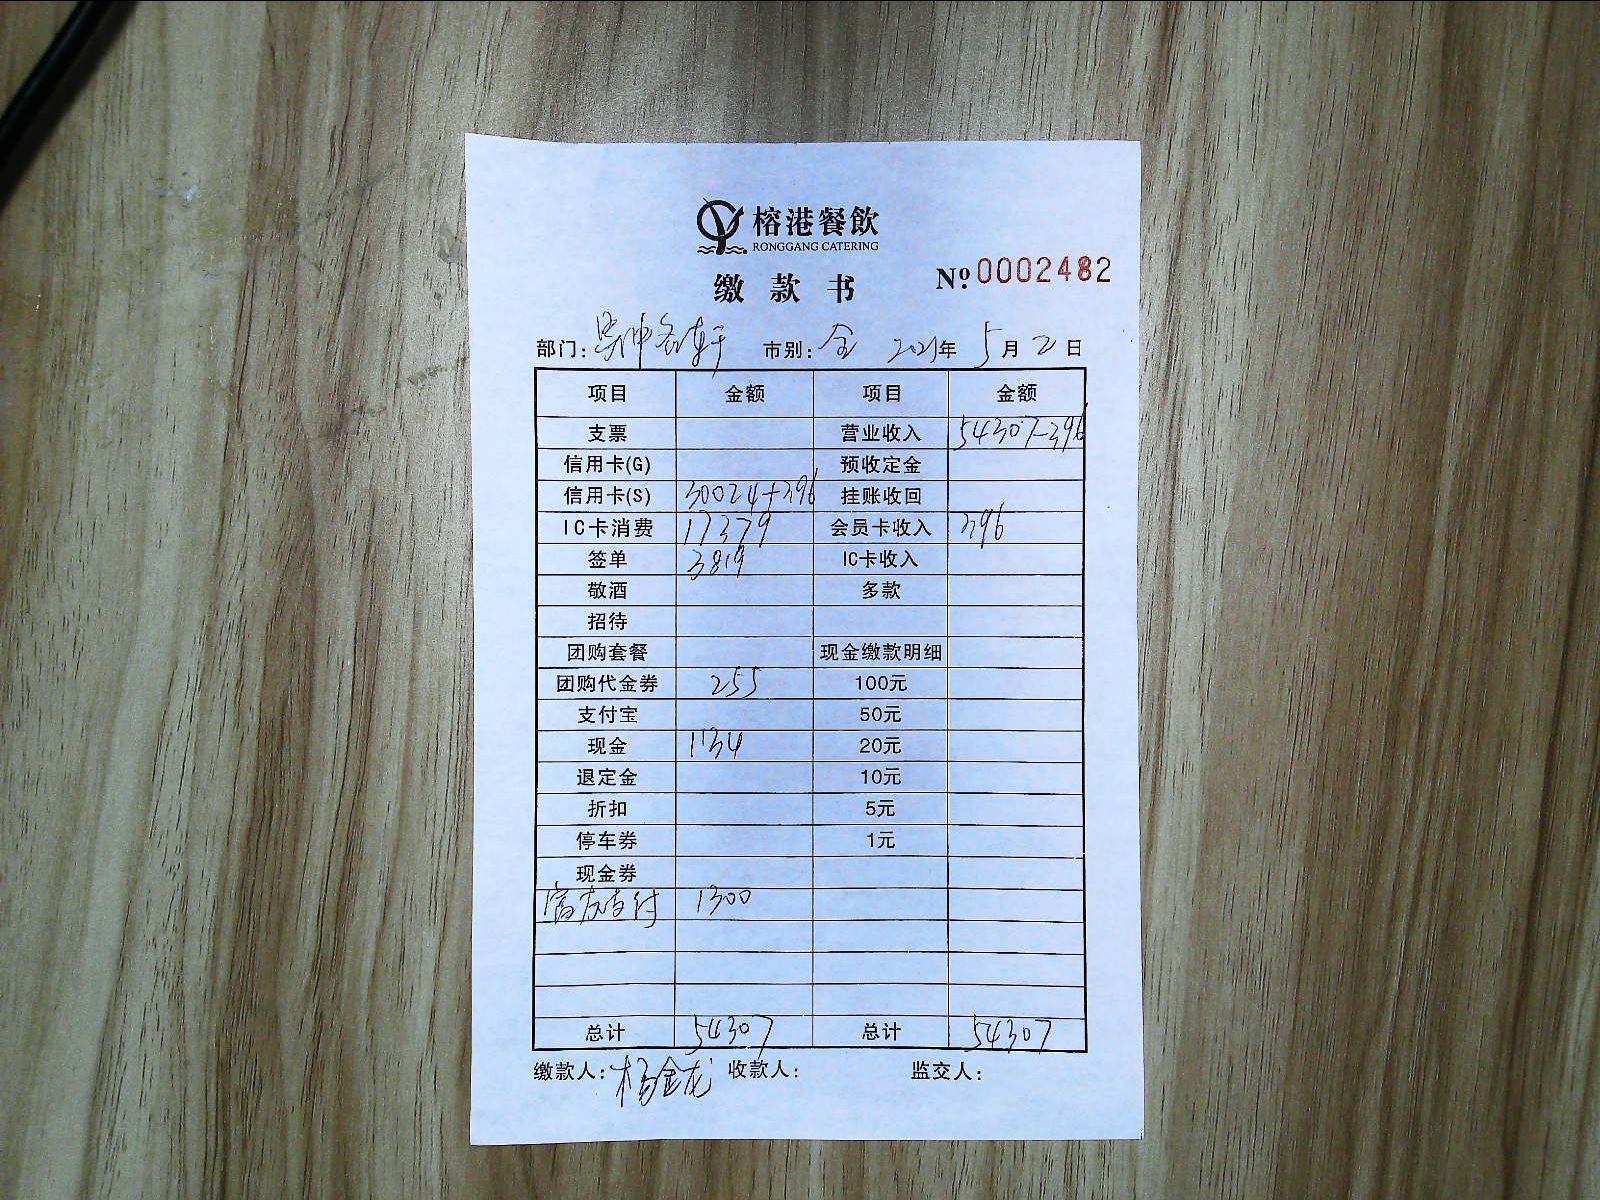 榕港餐飲
RONGGANG CATERING
缴款书 Nº 0002482
部门: 市别: 全 2021年 5月2日
项目 金额 项目 金额
支票 营业收入 54307-396
信用卡(G) 预收定金
信用卡(S) 30024+396 挂账收回
IC卡消费 17379 会员卡收入 396
签单 3819 IC卡收入
敬酒 多款
招待
团购套餐 现金缴款明细
团购代金券 255 100元
支付宝 50元
现金 1134 20元
退定金 10元
折扣 5元
停车券 1元
现金券
支付 1300
总计 54307 总计 54307
缴款人: 杨金龙 收款人: 监交人: